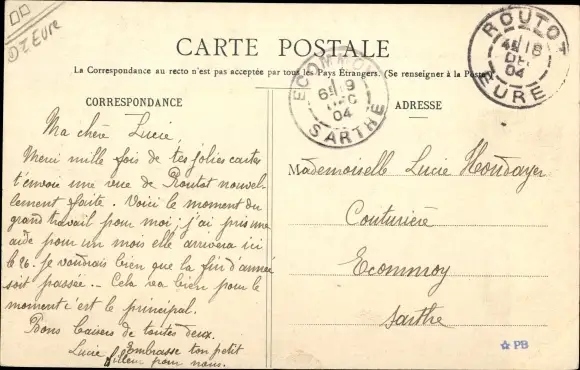 D 7. Eure
CARTE POSTALE
La Correspondance au recto n'est pas acceptée par tous les Pays Étrangers. (Se renseigner à la Poste)
ROUTOT
18
DEC
04
EURE
ECOMMOY
6 9
DEC
04
SARTHE
CORRESPONDANCE
Ma chère Lucie,
Merci mille fois de tes jolies cartes
t'envoie une vue de Routot nouvel-
lement faite. Voici le moment du
grand travail pour moi; j'ai pris une
aide pour un mois elle arrivera ici
le 26. Je voudrais bien que la fin d'année
soit passée. - Cela va bien pour le
moment c'est le principal.
Bons baisers de toutes deux.
Lucie Embrasse ton petit
filleul pour nous.
ADRESSE
Mademoiselle Lucie Houdayer
Couturière
Ecommoy
Sarthe
PB